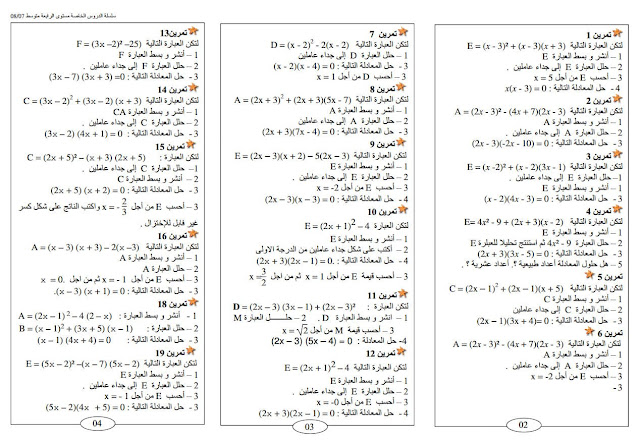 سلسلة الدروس الخاصة مستوى الرابعة متوسط 08/07
تمرين 1
لتكن العبارة التالية E = (x - 3)² + (x - 3)(x + 3)
1 – أنشر و بسط العبارة E
2 – حلل العبارة E إلى جداء عاملين .
3 – أحسب E من أجل x = 5
4 - حل المعادلة التالية : x(x - 3) = 0
تمرين 2
لتكن العبارة التالية A = (2x - 3)² - (4x + 7)(2x - 3)
1 – أنشر و بسط العبارة A
2 – حلل العبارة A إلى جداء عاملين .
3 - حل المعادلة التالية : (2x - 3)(-2x - 10) = 0
تمرين 3
لتكن العبارة التالية E = (x - 2)² + (x - 2)(3x - 1)
1 – أنشر و بسط العبارة E
2 – حلل العبارة E إلى جداء عاملين .
3 - حل المعادلة التالية : (x - 2)(4x - 3) = 0
تمرين 4
لتكن العبارة التالية E= 4x² - 9 + (2x + 3)(x - 2)
1 – أنشر و بسط العبارة E
2 – حلل العبارة 4x² - 9 ثم استنتج تحليلا للعبارة E
4 - حل المعادلة التالية : (2x + 3)(3x - 5) = 0
5 – هل حلول المعادلة أعداد طبيعية ؟. أعداد عشرية ؟.
تمرين 5
لتكن العبارة التالية C = (2x – 1)² + (2x – 1)(x + 5)
1 – أنشر و بسط العبارة
2 – حلل العبارة إلى جداء عاملين .
3 - حل المعادلة التالية : (2x – 1)(3x + 4)= 0
تمرين 6
لتكن العبارة التالية A = (2x – 3)² - (4x + 7)(2x – 3)
1 – أنشر و بسط العبارة A
2 – حلل العبارة A إلى جداء عاملين .
3 – أحسب E من أجل x = -2
3 -
02
تمرين 7
لتكن العبارة التالية D = (x - 2)² - 2(x - 2)
1 – أنشر و بسط العبارة D
2 – حلل العبارة D إلى جداء عاملين
4 - حل المعادلة التالية : (x - 2)(x - 4) = 0
3 – أحسب D من أجل x = 1
تمرين 8
لتكن العبارة التالية A = (2x + 3)² + (2x + 3)(5x - 7)
1 – أنشر و بسط العبارة A
2 – حلل العبارة A إلى جداء عاملين .
3 - حل المعادلة التالية : (2x + 3)(7x - 4) = 0
تمرين 9
لتكن العبارة التالية E = (2x – 3)(x + 2) – 5(2x – 3)
1 – أنشر و بسط العبارة E
2 – حلل العبارة E إلى جداء عاملين .
3 – أحسب E من أجل x = -2
4 - حل المعادلة التالية : (2x – 3)(x – 3) = 0
تمرين 10
لتكن العبارة التالية E = (2x + 1)² – 4
1 – أنشر و بسط العبارة E
2 – أكتب على شكل جداء عاملين من الدرجة الاولى
4 - حل المعادلة التالية : (2x + 3)(2x – 1) = 0.
3 – أحسب قيمة E من أجل x = 1 ثم من اجل x = 3/2
تمرين 11
لتكن العبارة التالية : D = (2x – 3) (3x – 1) + (2x – 3)²
1 – انشر و بسط العبارة D . 2 – حلـــل العبارة M
3 – أحسب قيمة M من أجل x = √2
4 – حل المعادلة : (2x – 3) (5x – 4) = 0
تمرين 12
لتكن العبارة التالية E = (2x + 1)² – 4
1 – أنشر و بسط العبارة E
2 – حلل العبارة E إلى جداء عاملين .
3 – أحسب E من أجل x = -0
4 - حل المعادلة التالية : (2x + 3)(2x – 1) = 0
03
تمرين13
لتكن العبارة التالية F = (3x –2)² –25)
1 – أنشر و بسط العبارة F
2 – حلل العبارة F إلى جداء عاملين .
3 - حل المعادلة التالية : (3x – 7) (3x + 3) =0
تمرين 14
لتكن العبارة التالية C = (3x – 2)² + (3x – 2) (x + 3)
1 – أنشر و بسط العبارة CA
2 – حلل العبارة C إلى جداء عاملين .
3 - حل المعادلة التالية : (3x – 2) (4x + 1) = 0
تمرين 15
لتكن العبارة التالية C = (2x + 5)² – (x + 3) (2x + 5)
1 – أنشر و بسط العبارة C
2 – حلل العبارة C إلى جداء عاملين .
3 - حل المعادلة التالية : (2x + 5) (x + 2) = 0
3 – أحسب E من أجل x = - 2/3 واكتب الناتج على شكل كسر
غير قابل للإختزال .
تمرين 16
لتكن العبارة التالية A = (x – 3) (x + 3) – 2(x –3)
1 – أنشر و بسط العبارة A
2 – حلل العبارة A
3 – أحسب E من أجل x = - 1 ثم من اجل x = 0.
3 - حل المعادلة التالية : (x – 3) (x + 1) = 0.
تمرين 18
1 - أنشر و بسط العبارة : A = (2x – 1)² – 4 (2 – x)
2 – حلل العبارة : B = (x – 1)² + (3x + 5) (x – 1)
3 - حل المعادلة التالية : (x – 1) (4x + 4) = 0
تمرين 19
لتكن العبارة التالية E = (5x – 2)² – (x – 7) (5x – 2)
1 – أنشر و بسط العبارة E
2 – حلل العبارة E إلى جداء عاملين .
3 – أحسب E من أجل x = - 1
3 - حل المعادلة التالية : (5x – 2)(4x + 5) = 0
04